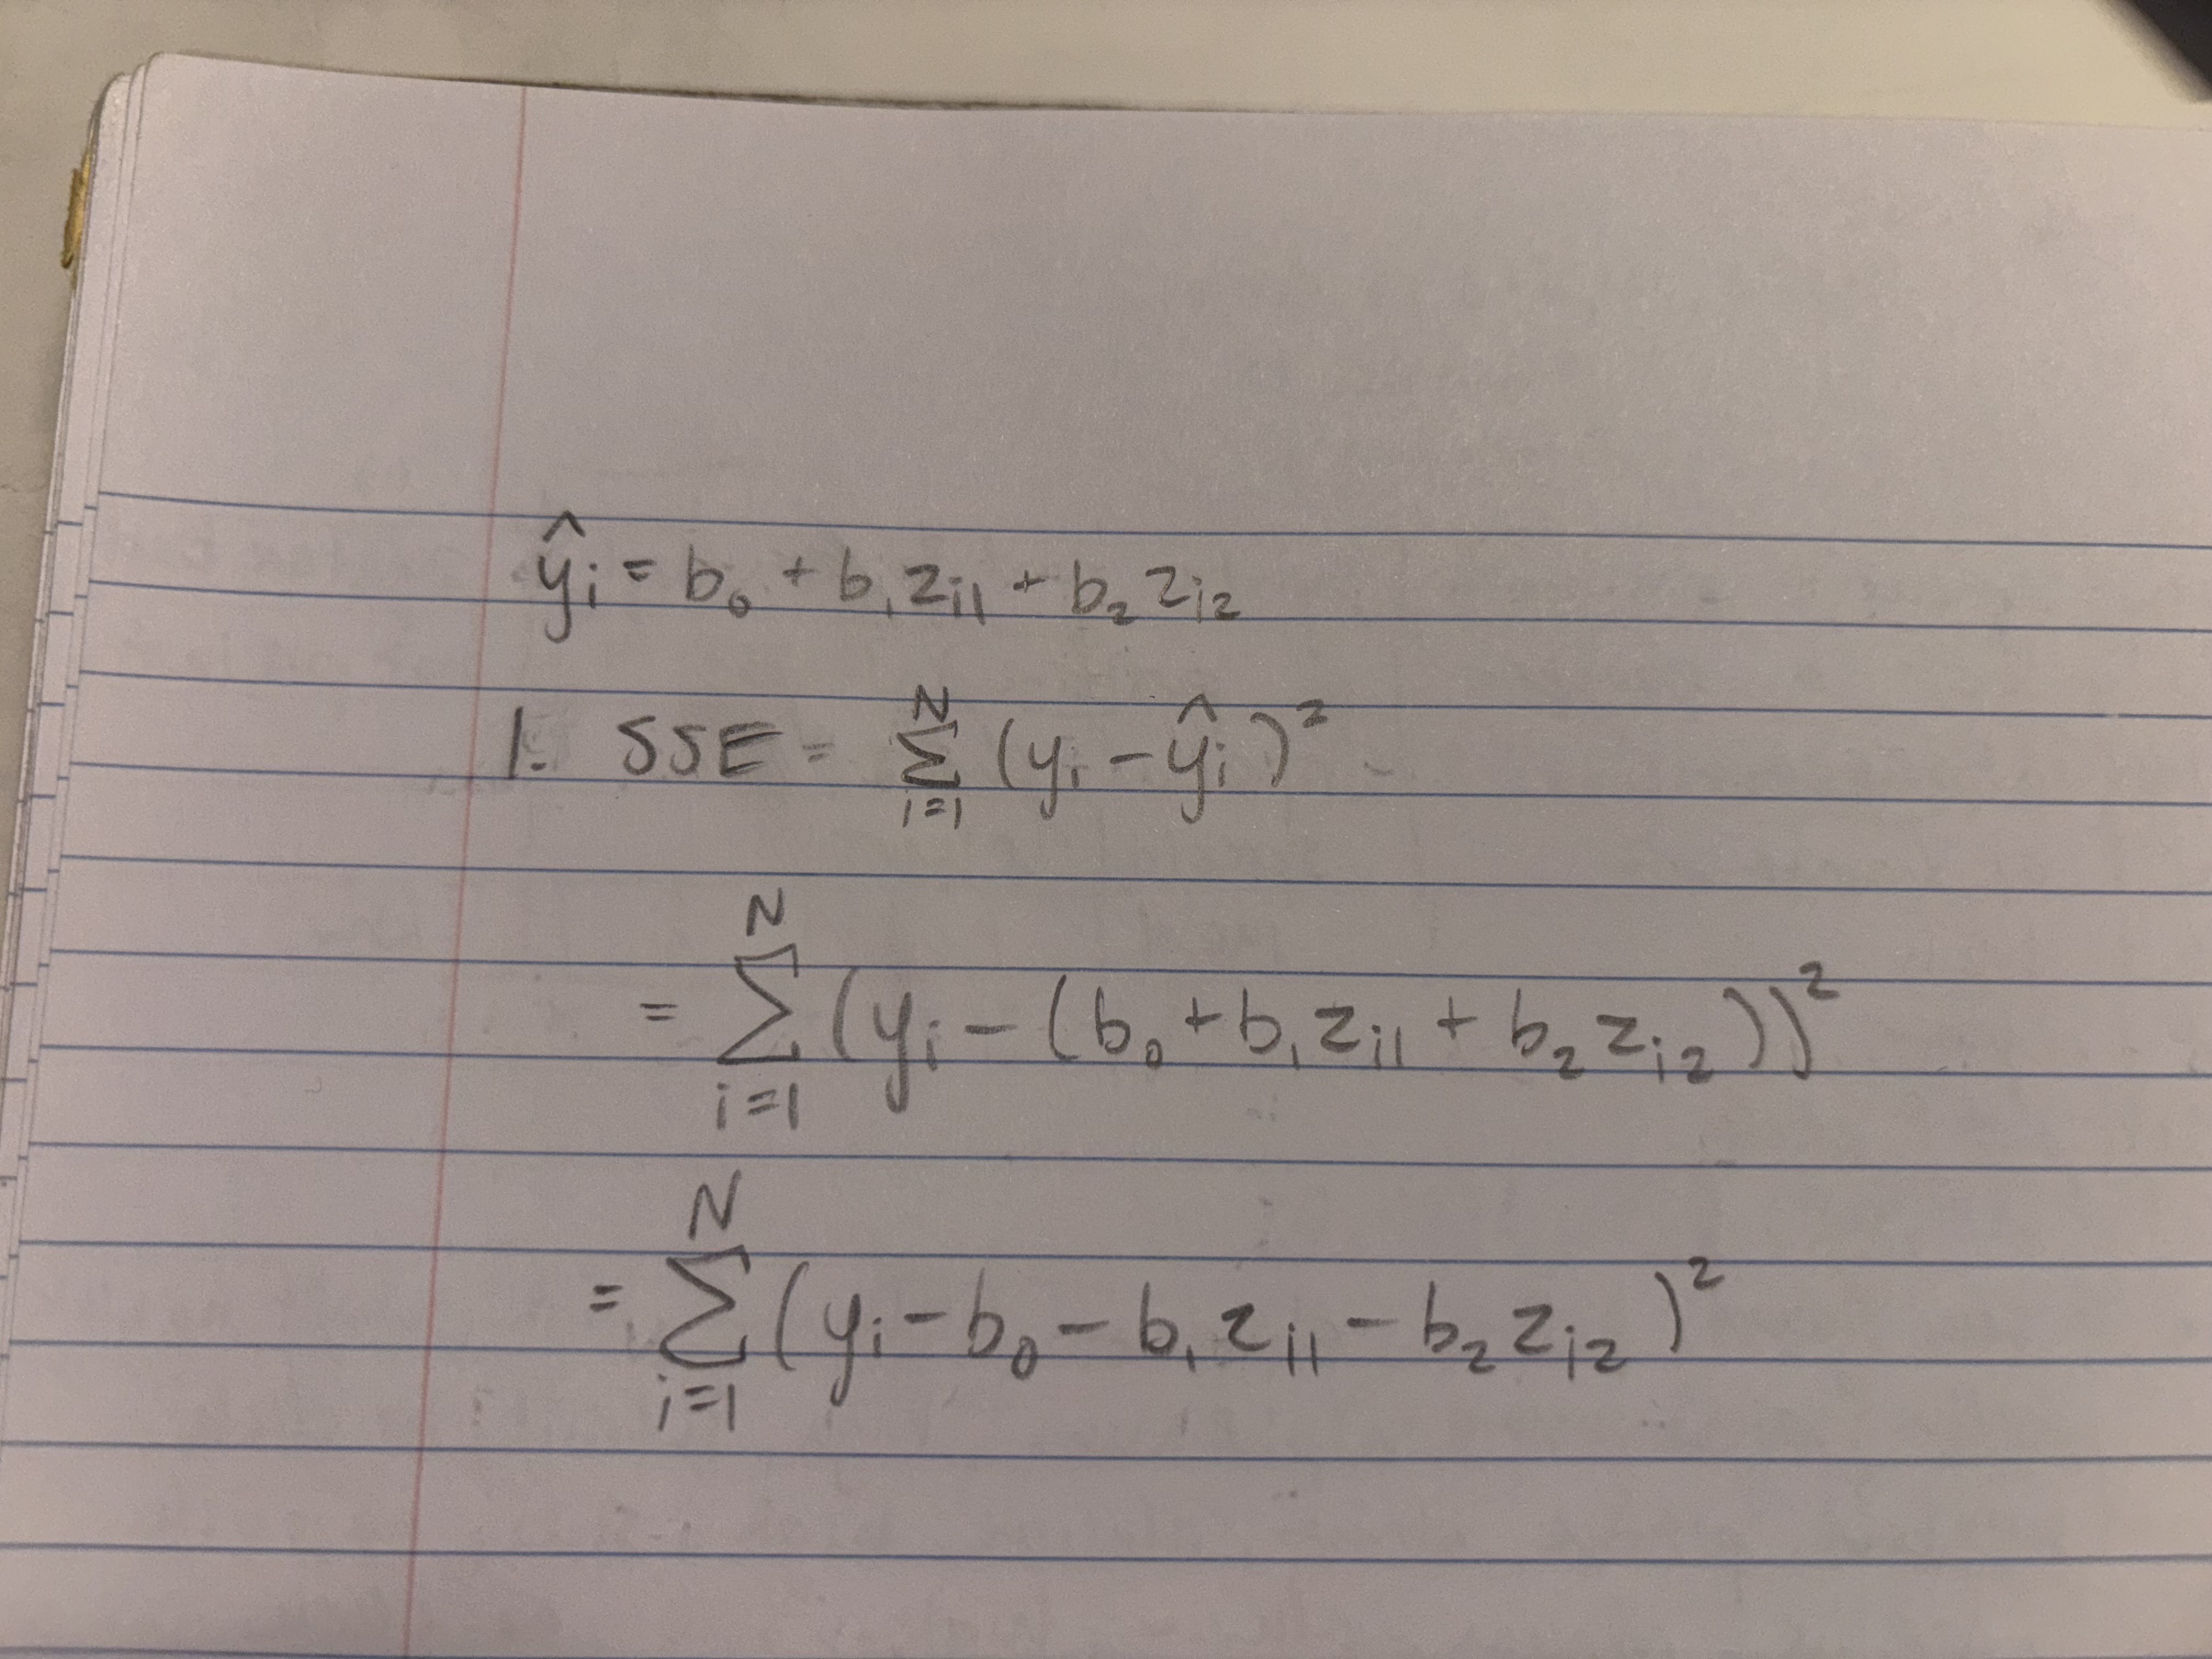 ŷᵢ = b₀ + b₁zᵢ₁ + b₂zᵢ₂
1. SSE = Σᵢ₌₁ᴺ (yᵢ − ŷᵢ)²
= Σᵢ₌₁ᴺ (yᵢ − (b₀ + b₁zᵢ₁ + b₂zᵢ₂))²
= Σᵢ₌₁ᴺ (yᵢ − b₀ − b₁zᵢ₁ − b₂zᵢ₂)²